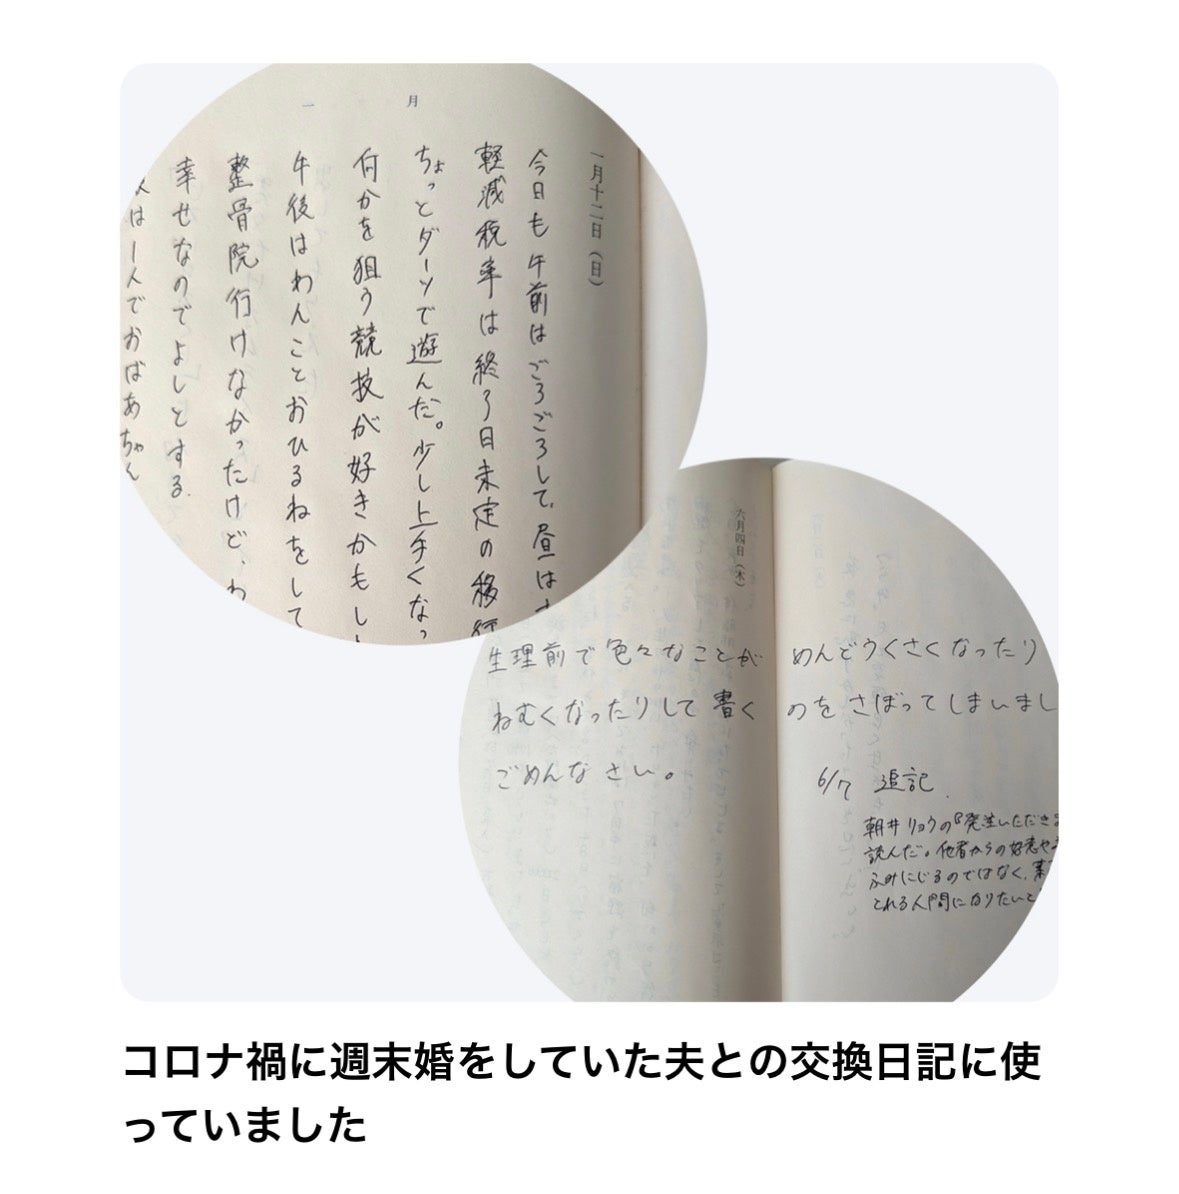 一月
一月十二日(日)
今日も午前はごろごろして、昼は
軽減税率は終了日未定の移行
ちょっとダーツで遊んだ。少し上手くなっ
何かを狙う競技が好きかもし
午後はわんことおひるねをして
整骨院行けなかったけど、わ
幸せなのでよしとする。
は1人でおばあちゃん
六月四日(木)
生理前で色々なことが めんどうくさくなったり
ねむくなったりして書く のをさぼってしまいまし
ごめんなさい。
6/7 追記.
朝井リョウの『発注いただき
読んだ。他者からの好意や
ふみにじるのではなく、素
とれる人間になりたいと
コロナ禍に週末婚をしていた夫との交換日記に使
っていました